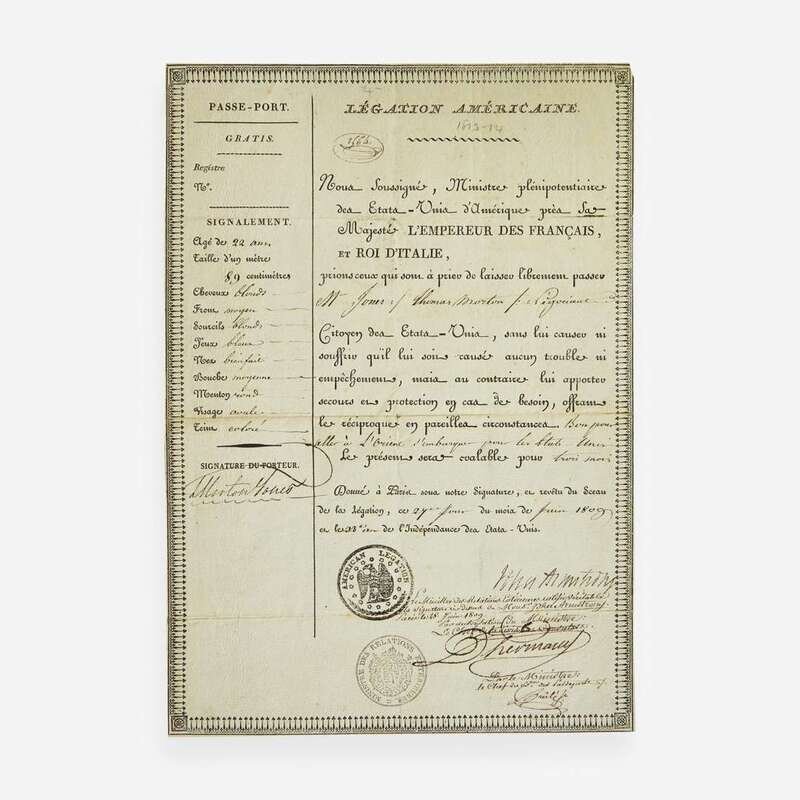 PASSE-PORT.
GRATIS.
Registre
N°.
SIGNALEMENT.
Agé de 22 ans
Taille d'un mètre
89 centimètres
Cheveux blonds
Front moyen
Sourcils blonds
Yeux bleus
Nez bienfait
Bouche moyenne
Menton rond
Visage ovale
Teint coloré
SIGNATURE DU PORTEUR.
TMorton Jones
LÉGATION AMÉRICAINE.
1813-14
Nous Soussigné, Ministre plénipotentiaire
des Etats-Unis d'Amérique près Sa
Majesté L'EMPEREUR DES FRANÇAIS,
ET ROI D'ITALIE,
prions ceux qui sont à prier de laisser librement passer
Mr. Jones Thomas Morton Négociant
Citoyen des Etats-Unis, sans lui causer ni
souffrir qu'il lui soit causé aucun trouble ni
empêchement, mais au contraire lui apporter
secours et protection en cas de besoin, offrant
le réciproque en pareilles circonstances. Bon pour
aller à L'Orient s'embarquer pour les Etats Unis
Le présent sera valable pour trois mois
Donné à Paris sous notre Signature, et revêtu du Sceau
de la Légation, ce 27me Jour du mois de Juin 1809
et le 33me de l'Indépendance des Etats-Unis.
AMERICAN LEGATION
John Armstrong
Le Ministre des Relations Extérieures certifie véritable
la signature ci-dessus de Monsr. John Armstrong
Paris le 28 Juin 1809
Par autorisation du Ministre
MINISTRE DES RELATIONS EXTERIEURES
Par le Ministre
le Chef du des Passeports